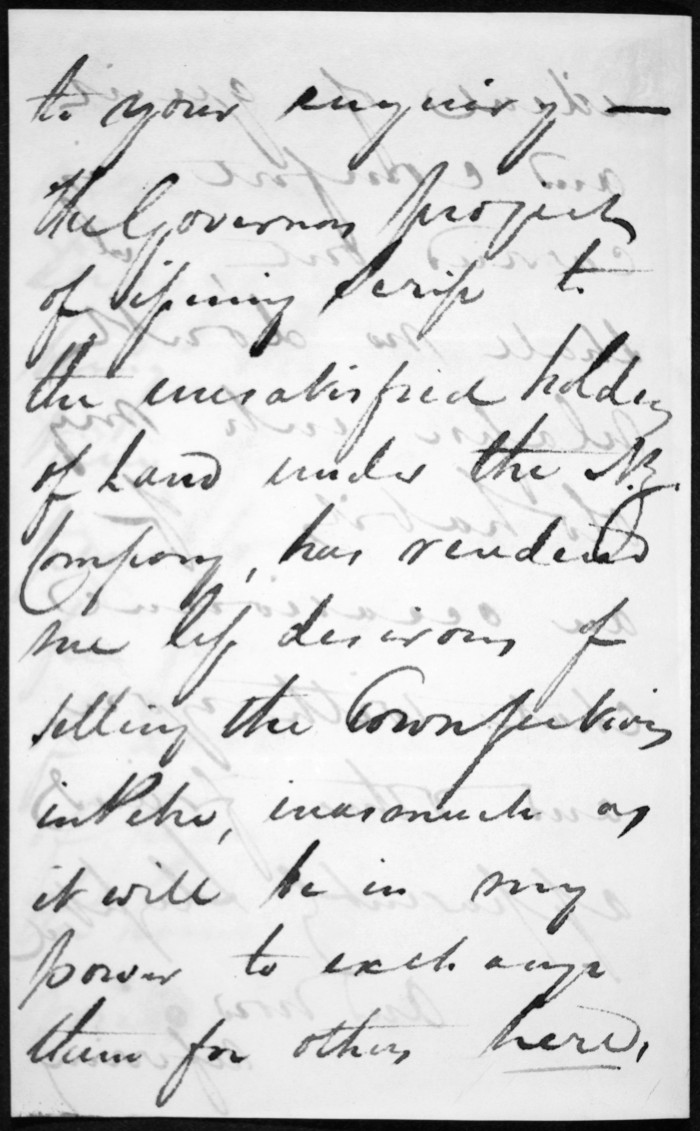 to your enquiry —
the Governors project
of issuing Scrip to
the unsatisfied holders
of Land under the N.Z.
Company, has rendered
me less desirous of
selling the Town sections
in Petre, inasmuch as
it will be in my
power to exchange
them for others here,